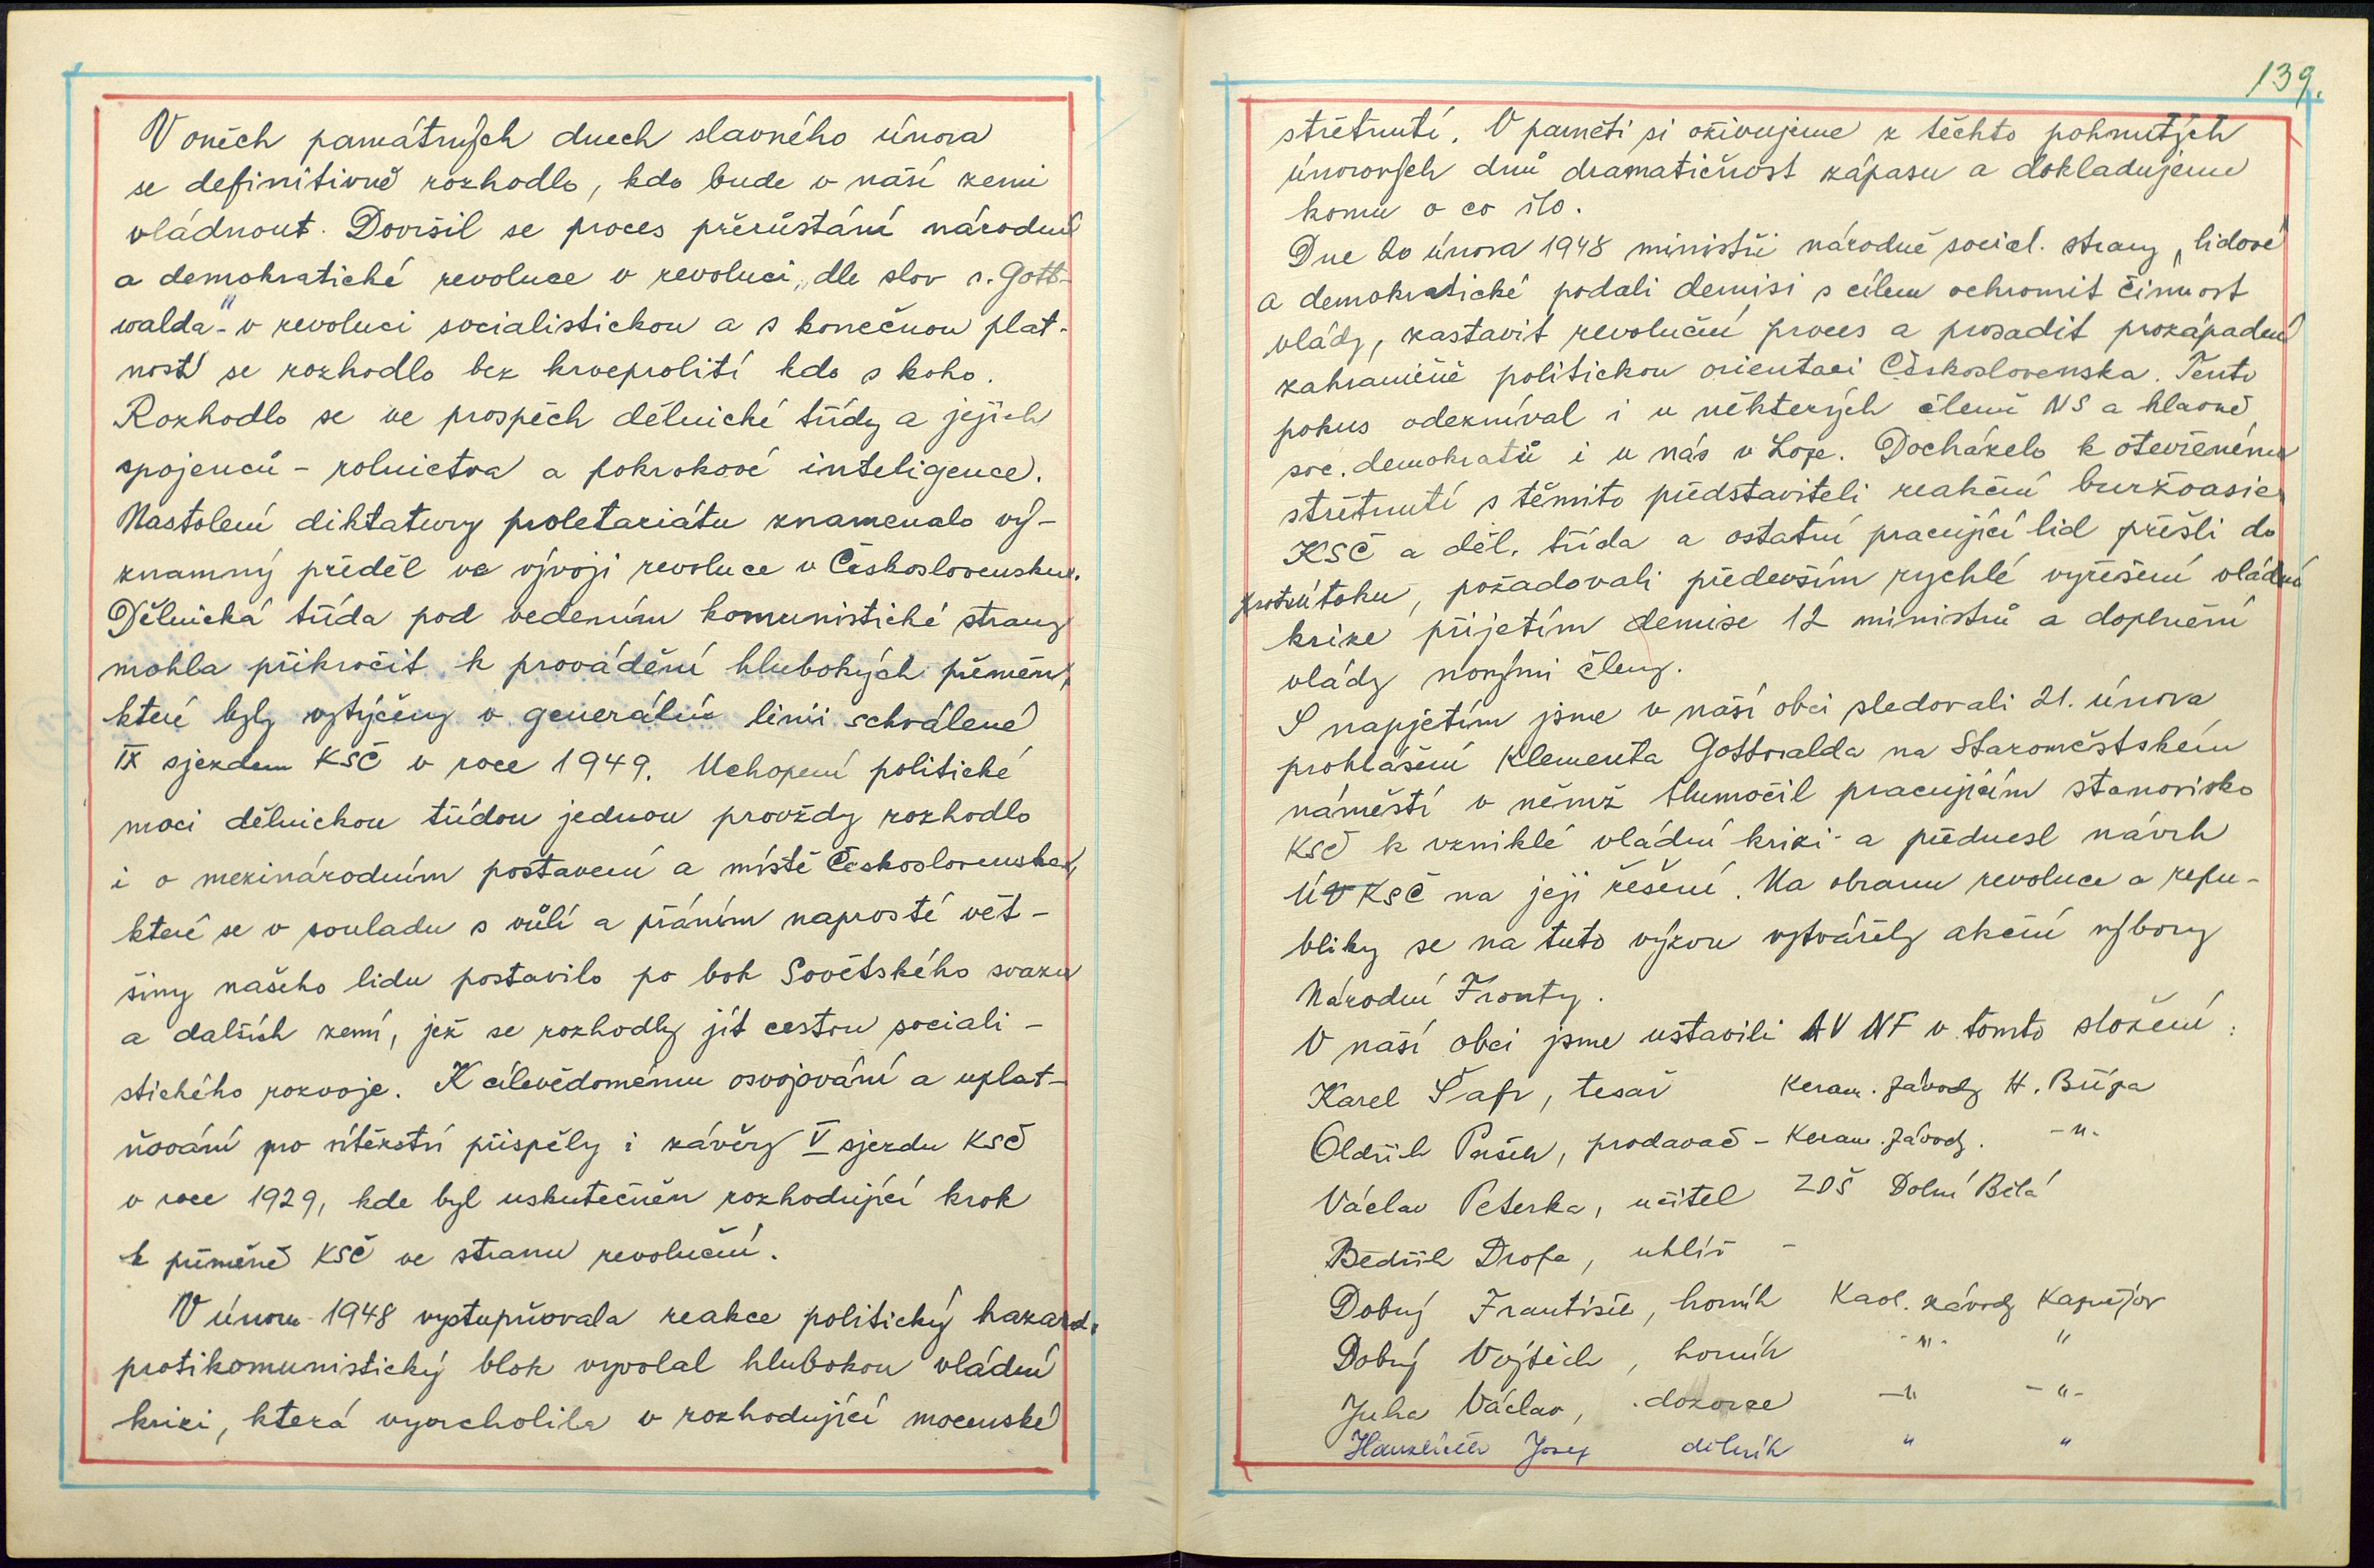 V oněch památných dnech slavného února
se definitivně rozhodlo, kdo bude v naší zemi
vládnout. Dovršil se proces přerůstání národní
a demokratické revoluce v revoluci „dle slov s. Gott-
walda"- v revoluci socialistickou a s konečnou plat-
ností se rozhodlo bez krveprolití kdo s koho.
Rozhodlo se ve prospěch dělnické třídy a jejích
spojenců - rolnictva a pokrokové inteligence.
Nastolení diktatury proletariátu znamenalo vý-
znamný předěl ve vývoji revoluce v Československu.
Dělnická třída pod vedením komunistické strany
mohla přikročit k provádění hlubokých přeměn,
které byly vytýčeny v generální linii schválené
IX sjezdem KSČ v roce 1949. Uchopení politické
moci dělnickou třídou jednou provždy rozhodlo
i o mezinárodním postavení a místě Československa,
které se v souladu s vůlí a přáním naprosté vět-
šiny našeho lidu postavilo po bok Sovětského svazu
a dalších zemí, jež se rozhodly jít cestou sociali-
stického rozvoje. K cílevědomému osvojování a uplat-
ňování pro vítězství přispěly i závěry V sjezdu KSČ
v roce 1929, kde byl uskutečněn rozhodující krok
k přeměně KSČ ve stranu revoluční.
V únoru 1948 vystupňovala reakce politický hazard.
protikomunistický blok vyvolal hlubokou vládní
krizi, která vyvrcholila v rozhodující mocenské
139.
střetnutí. V paměti si oživujeme z těchto pohnutých
únorových dnů dramatičnost zápasu a dokladujeme
komu o co šlo.
Dne 20 února 1948 ministři národně social. strany, lidové
a demokratické podali demisi s cílem ochromit činnost
vlády, zastavit revoluční proces a prosadit prozápadní
zahraničně politickou orientaci Československa. Tento
pokus odezníval i u některých členů NS a hlavně
soc. demokratů i u nás v Loze. Docházelo k otevřenému
střetnutí s těmito představiteli reakční buržoasie
KSČ a děl. třída a ostatní pracující lid přešli do
protiútoku, požadovali především rychlé vyřešení vládní
krize přijetím demise 12 ministrů a doplnění
vlády novými členy.
S napjetím jsme v naší obci sledovali 21. února
prohlášení Klementa Gottwalda na Staroměstském
náměstí v němž tlumočil pracujícím stanovisko
KSČ k vzniklé vládní krizi a přednesl návrh
ÚV KSČ na její řešení. Na obranu revoluce a repu-
bliky se na tuto výzvu vytvářely akční výbory
Národní Fronty.
V naší obci jsme ustavili AV NF v tomto složení:
Karel Šafr, tesař Keram. závody H. Bříza
Oldřich Pašek, prodavač - Keram. závody. -"-
Václav Peterka, učitel ZDŠ Dolní Bělá
Bedřich Dropa, uhlíř -
Dobrý František, horník Kaol. závody Kaznějov
Dobrý Vojtěch, horník -"- "
Juha Václav, dozorce -" -"-
Josef dělník " "